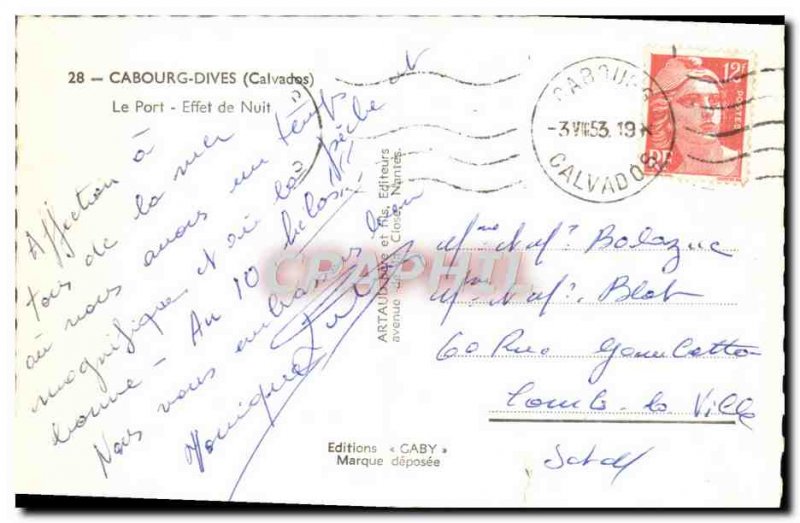 28 — CABOURG-DIVES (Calvados)
Le Port - Effet de Nuit
Affection à
tous de la mer
où nous avons un temps
magnifique et où la pêche est
bonne - Au 10 hélas !!
Nous vous embrassons bien
Monique
ARTAUD Père et fils, Editeurs
avenue de la Close, Nantes.
CPAPHIL
CABOURG
-3 VIII 53. 19
CALVADOS
12F
POSTES
RF
Mme et Mr. Balazuc
Mme et Mr. Blot
60 Rue Gambetta
Combs la Ville
Editions « GABY »
Marque déposée